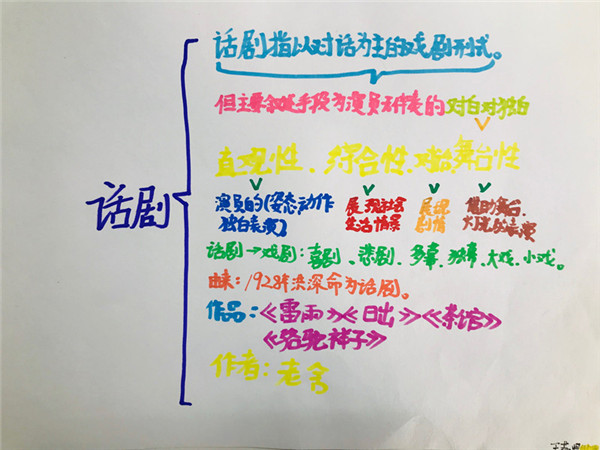 话剧
话剧指以对话为主的戏剧形式。
但主要叙述手段为演员在台的对白或独白
直观性、综合性、对话、舞台性
演员的(姿态、动作 展现社会 展现 借助舞台、
独白表演) 生活情景 剧情 的表演
话剧→戏剧:喜剧、悲剧、多幕、独幕、大戏、小戏。
由来:1928年洪深命为话剧。
作品:《雷雨》《日出》《茶馆》
《骆驼祥子》
作者:老舍